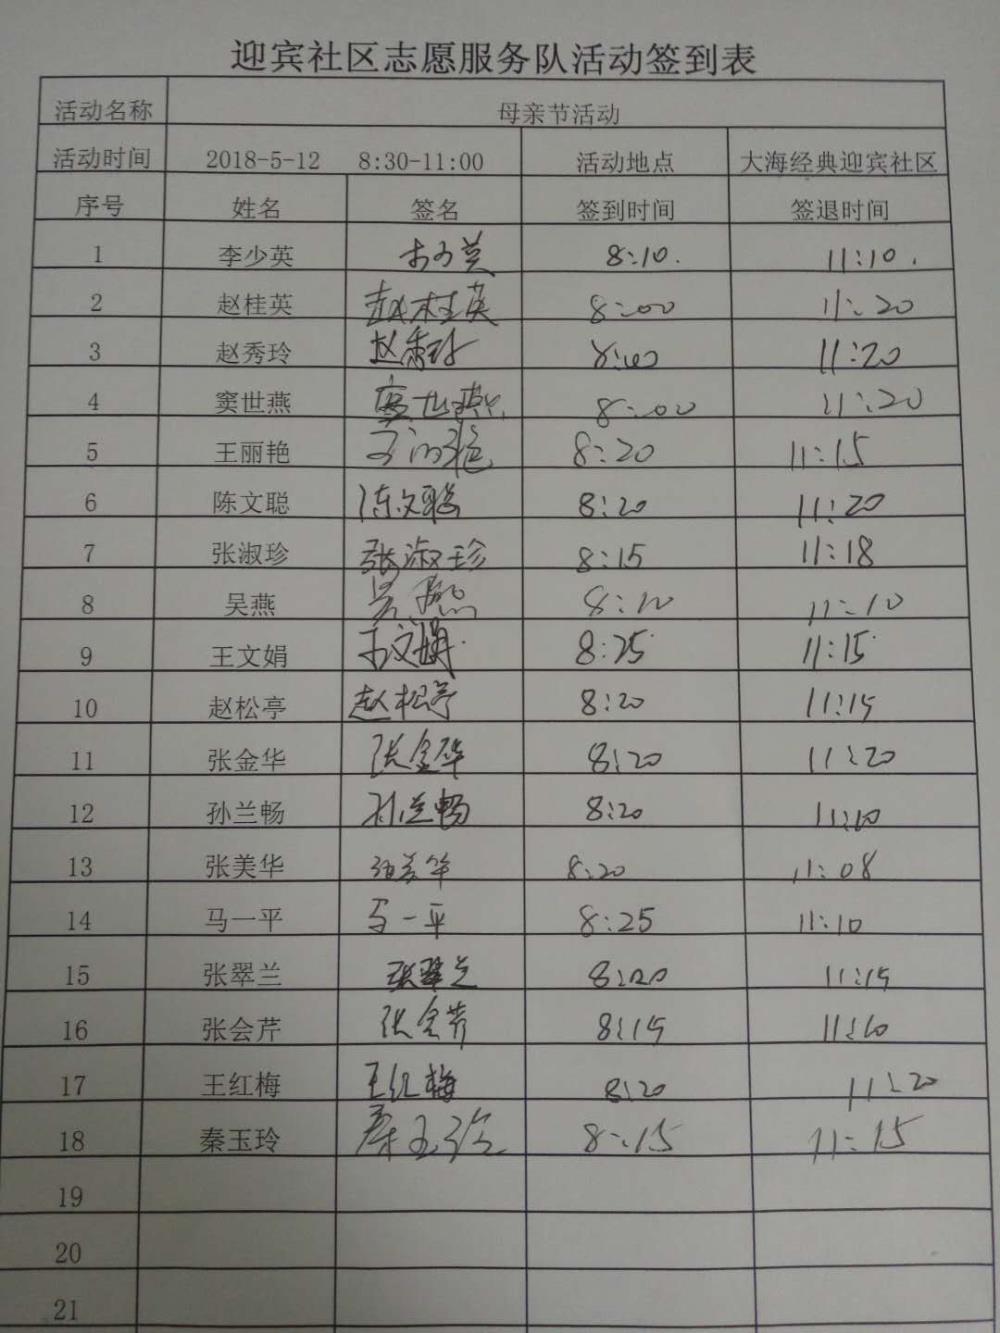 迎宾社区志愿服务队活动签到表
活动名称 母亲节活动
活动时间 2018-5-12 8:30-11:00 活动地点 大海经典迎宾社区
序号 姓名 签名 签到时间 签退时间
1 李少英 李少英 8:10. 11:10.
2 赵桂英 赵桂英 8:00 11:20
3 赵秀玲 赵秀玲 11:20
4 窦世燕 窦世燕 8:00 11:20
5 王丽艳 王丽艳 8:20 11:15
6 陈文聪 陈文聪 8:20 11:20
7 张淑珍 张淑珍 8:15 11:18
8 吴燕 吴燕 8:10 11:10
9 王文娟 王文娟 8:25 11:15
10 赵松亭 赵松亭 8:20 11:15
11 张金华 张金华 8:20 11:20
12 孙兰畅 孙兰畅 8:20 11:10
13 张美华 张美华 8:20 11:08
14 马一平 马一平 8:25 11:10
15 张翠兰 张翠兰 8:20 11:15
16 张会芹 张会芹 8:15 11:10
17 王红梅 王红梅 8:20 11:20
18 秦玉玲 秦玉玲 8:15 11:15
19
20
21